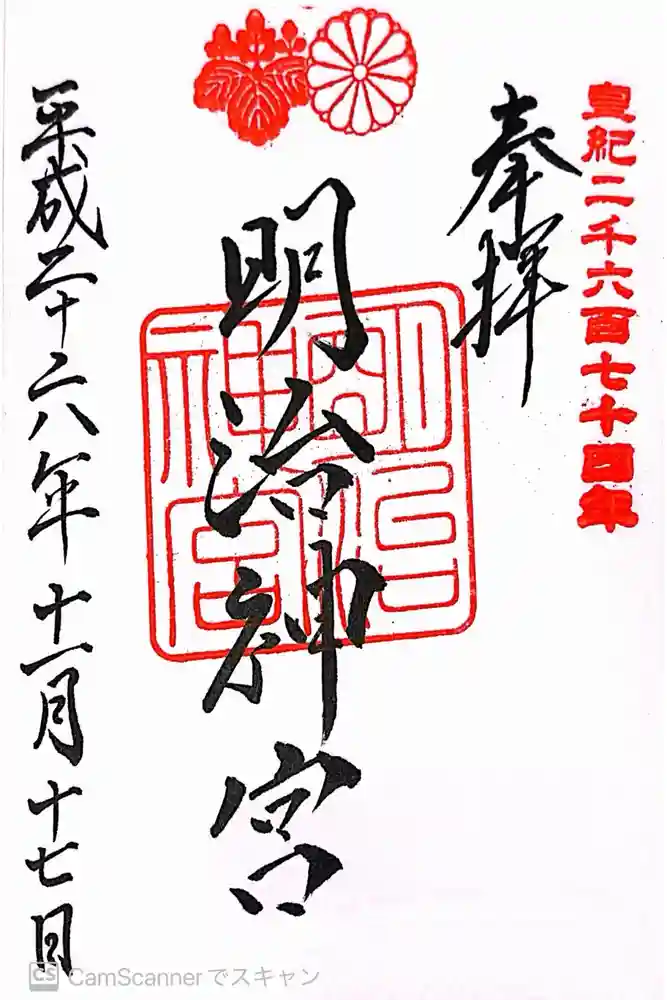 皇紀二千六百七十四年
奉拝
明治神宮
明治神宮
平成二十六年十一月十七日
CS CamScannerでスキャン